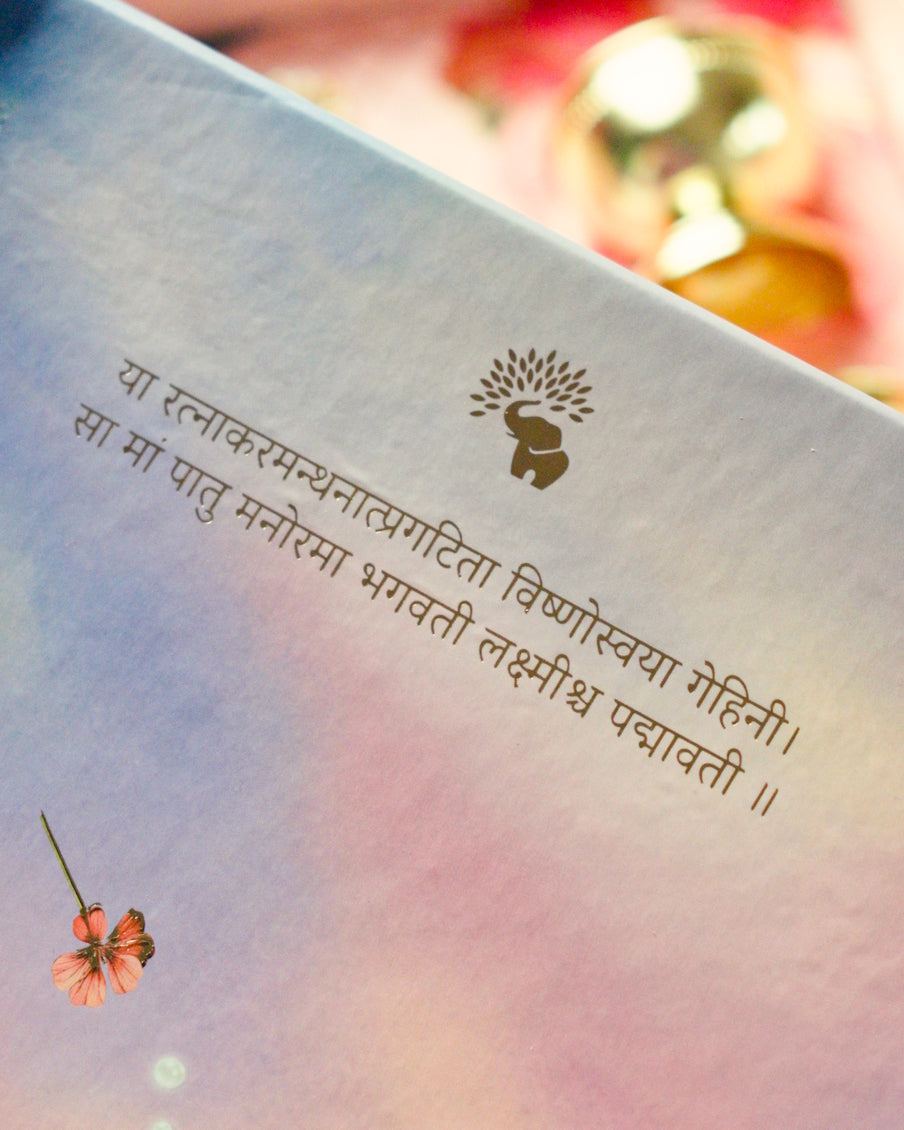 या रत्नाकरमन्थनात्प्रगटिता विष्णोस्वया गेहिनी।
सा मां पातु मनोरमा भगवती लक्ष्मीश्च पद्मावती ॥